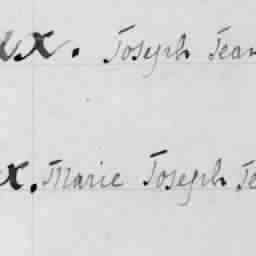 xx. Joseph Jean
x. Marie Joseph Je